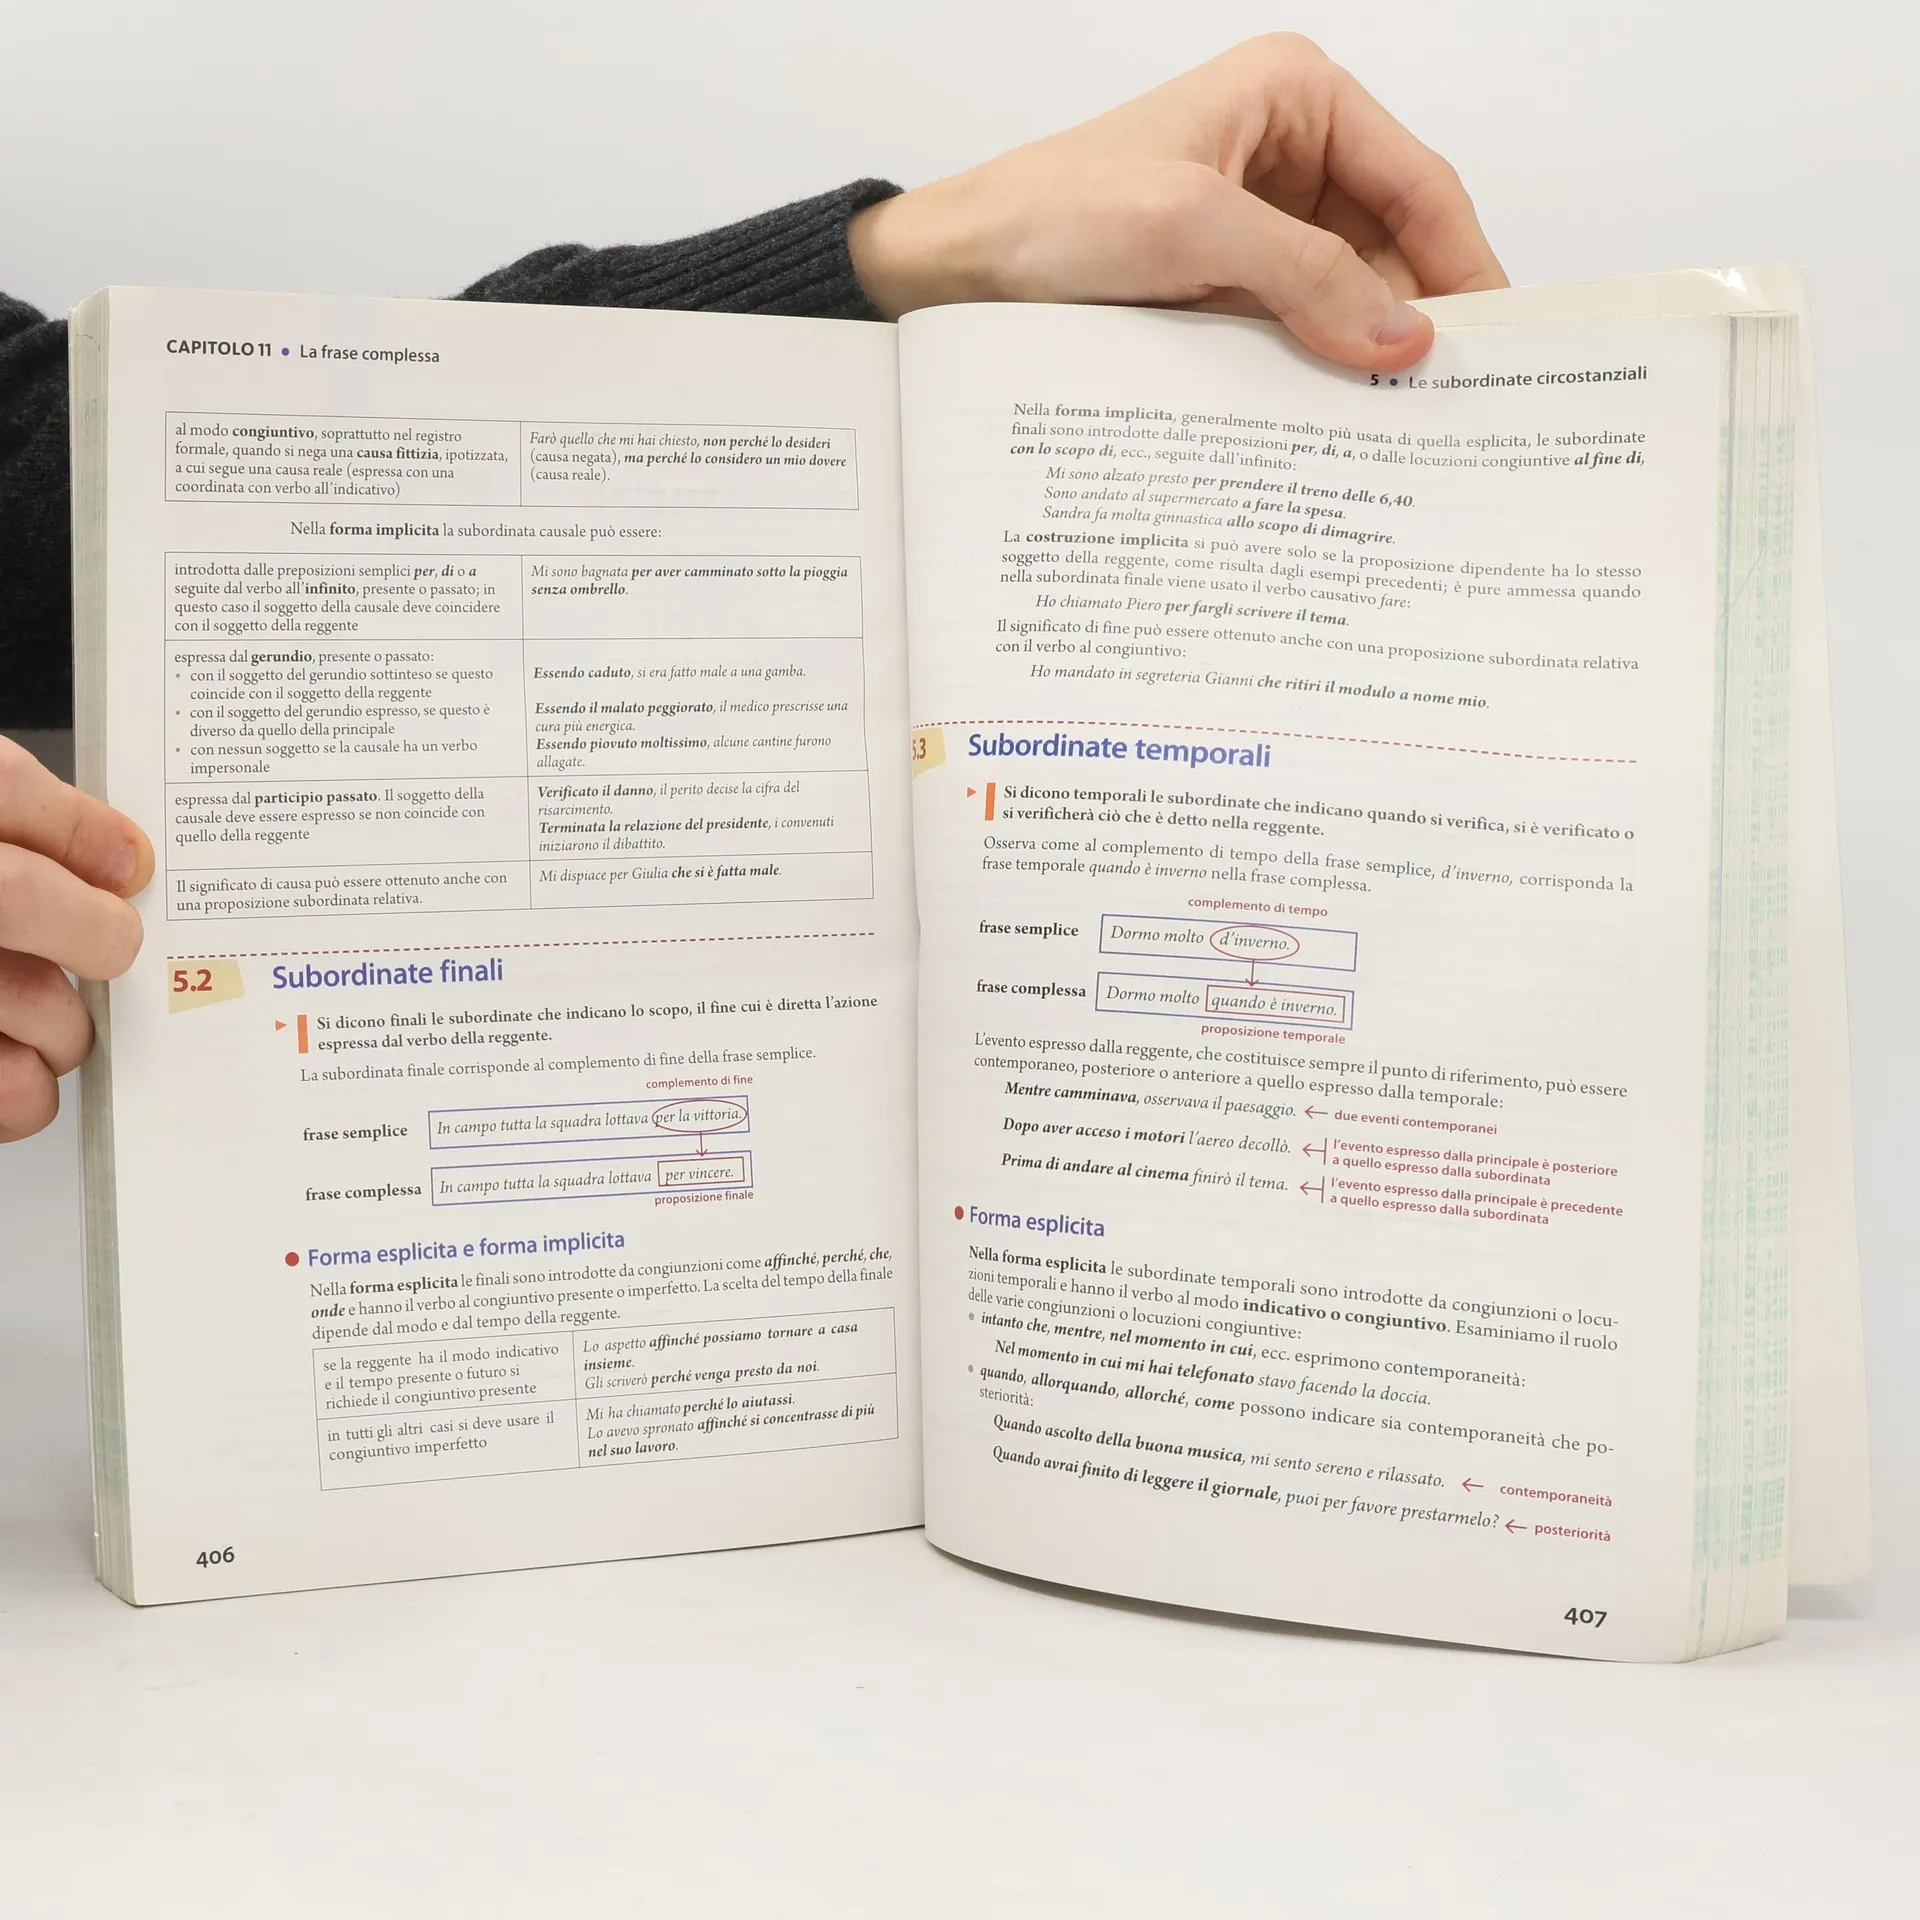 CAPITOLO 11 • La frase complessa
al modo congiuntivo, soprattutto nel registro
formale, quando si nega una causa fittizia, ipotizzata,
a cui segue una causa reale (espressa con una
coordinata con verbo all'indicativo)
Farò quello che mi hai chiesto, non perché lo desideri
(causa negata), ma perché lo considero un mio dovere
(causa reale).
Nella forma implicita la subordinata causale può essere:
introdotta dalle preposizioni semplici per, di o a
seguite dal verbo all'infinito, presente o passato; in
questo caso il soggetto della causale deve coincidere
con il soggetto della reggente
Mi sono bagnata per aver camminato sotto la pioggia
senza ombrello.
espressa dal gerundio, presente o passato:
• con il soggetto del gerundio sottinteso se questo
coincide con il soggetto della reggente
• con il soggetto del gerundio espresso, se questo è
diverso da quello della principale
• con nessun soggetto se la causale ha un verbo
impersonale
Essendo caduto, si era fatto male a una gamba.
Essendo il malato peggiorato, il medico prescrisse una
cura più energica.
Essendo piovuto moltissimo, alcune cantine furono
allagate.
espressa dal participio passato. Il soggetto della
causale deve essere espresso se non coincide con
quello della reggente
Verificato il danno, il perito decise la cifra del
risarcimento.
Terminata la relazione del presidente, i convenuti
iniziarono il dibattito.
Il significato di causa può essere ottenuto anche con
una proposizione subordinata relativa.
Mi dispiace per Giulia che si è fatta male.
5.2 Subordinate finali
Si dicono finali le subordinate che indicano lo scopo, il fine cui è diretta l'azione
espressa dal verbo della reggente.
La subordinata finale corrisponde al complemento di fine della frase semplice.
complemento di fine
frase semplice In campo tutta la squadra lottava per la vittoria.
frase complessa In campo tutta la squadra lottava per vincere.
proposizione finale
• Forma esplicita e forma implicita
Nella forma esplicita le finali sono introdotte da congiunzioni come affinché, perché, che,
onde e hanno il verbo al congiuntivo presente o imperfetto. La scelta del tempo della finale
dipende dal modo e dal tempo della reggente.
se la reggente ha il modo indicativo
e il tempo presente o futuro si
richiede il congiuntivo presente
Lo aspetto affinché possiamo tornare a casa
insieme.
Gli scriverò perché venga presto da noi.
in tutti gli altri casi si deve usare il
congiuntivo imperfetto
Mi ha chiamato perché lo aiutassi.
Lo avevo spronato affinché si concentrasse di più
nel suo lavoro.
406
5 • Le subordinate circostanziali
Nella forma implicita, generalmente molto più usata di quella esplicita, le subordinate
finali sono introdotte dalle preposizioni per, di, a, o dalle locuzioni congiuntive al fine di,
con lo scopo di, ecc., seguite dall'infinito:
Mi sono alzato presto per prendere il treno delle 6,40.
Sono andato al supermercato a fare la spesa.
Sandra fa molta ginnastica allo scopo di dimagrire.
La costruzione implicita si può avere solo se la proposizione dipendente ha lo stesso
soggetto della reggente, come risulta dagli esempi precedenti; è pure ammessa quando
nella subordinata finale viene usato il verbo causativo fare:
Ho chiamato Piero per fargli scrivere il tema.
Il significato di fine può essere ottenuto anche con una proposizione subordinata relativa
con il verbo al congiuntivo:
Ho mandato in segreteria Gianni che ritiri il modulo a nome mio.
5.3 Subordinate temporali
Si dicono temporali le subordinate che indicano quando si verifica, si è verificato o
si verificherà ciò che è detto nella reggente.
Osserva come al complemento di tempo della frase semplice, d'inverno, corrisponda la
frase temporale quando è inverno nella frase complessa.
complemento di tempo
frase semplice Dormo molto d'inverno.
frase complessa Dormo molto quando è inverno.
proposizione temporale
L'evento espresso dalla reggente, che costituisce sempre il punto di riferimento, può essere
contemporaneo, posteriore o anteriore a quello espresso dalla temporale:
Mentre camminava, osservava il paesaggio. ← due eventi contemporanei
Dopo aver acceso i motori l'aereo decollò. ← l'evento espresso dalla principale è posteriore
a quello espresso dalla subordinata
Prima di andare al cinema finirò il tema. ← l'evento espresso dalla principale è precedente
a quello espresso dalla subordinata
• Forma esplicita
Nella forma esplicita le subordinate temporali sono introdotte da congiunzioni o locu-
zioni temporali e hanno il verbo al modo indicativo o congiuntivo. Esaminiamo il ruolo
delle varie congiunzioni o locuzioni congiuntive:
• intanto che, mentre, nel momento in cui, ecc. esprimono contemporaneità:
Nel momento in cui mi hai telefonato stavo facendo la doccia.
• quando, allorquando, allorché, come possono indicare sia contemporaneità che po-
steriorità:
Quando ascolto della buona musica, mi sento sereno e rilassato. ← contemporaneità
Quando avrai finito di leggere il giornale, puoi per favore prestarmelo? ← posteriorità
407